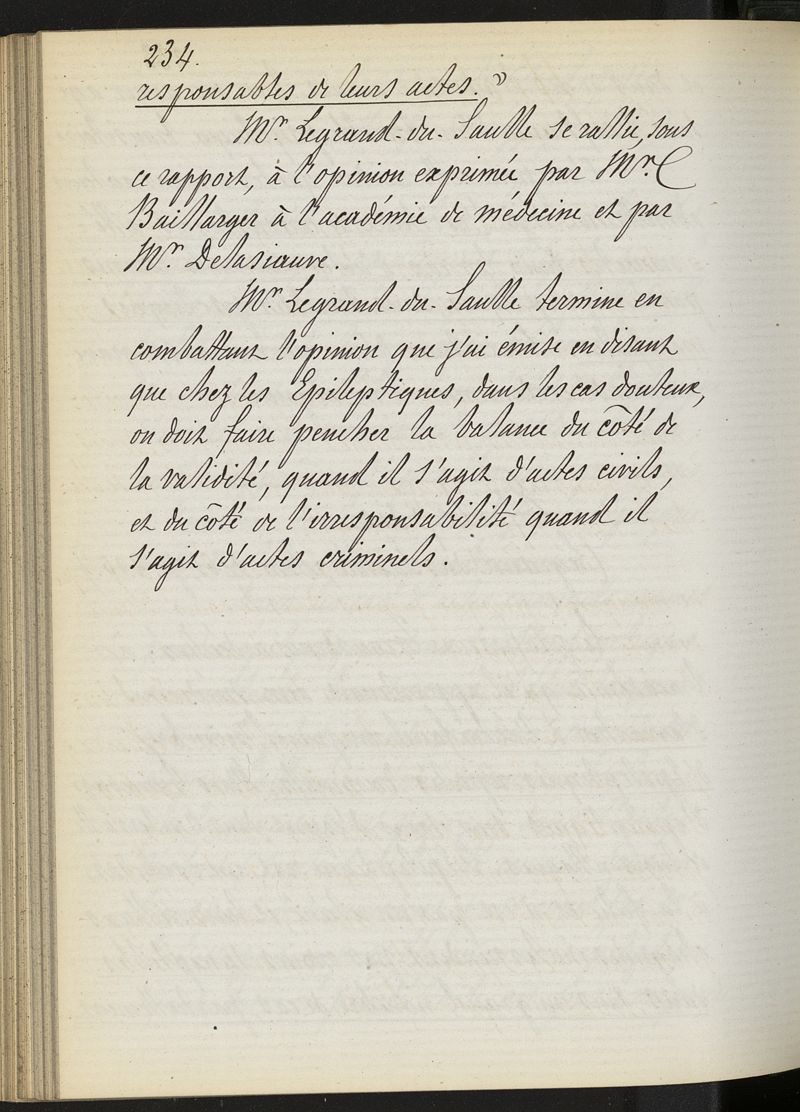 234.
responsables de leurs actes. »
Mr. Legrand-du-Saulle se rallie, sous
ce rapport, à l'opinion exprimée par Mr.
Baillarger à l'académie de médecine et par
Mr. Delasiauve.
Mr. Legrand-du-Saulle termine en
combattant l'opinion que j'ai émise en disant
que chez les Epileptiques, dans les cas douteux,
on doit faire pencher la balance du côté de
la validité, quand il s'agit d'actes civils,
et du côté de l'irresponsabilité quand il
s'agit d'actes criminels.